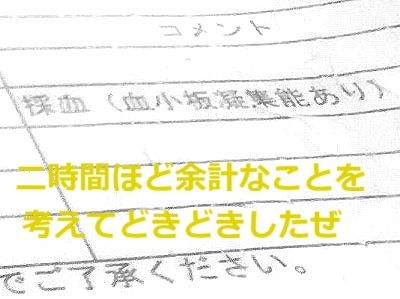 コメント
採血（血小板凝集能あり）
二時間ほど余計なことを
考えてどきどきしたぜ
でご了承ください。